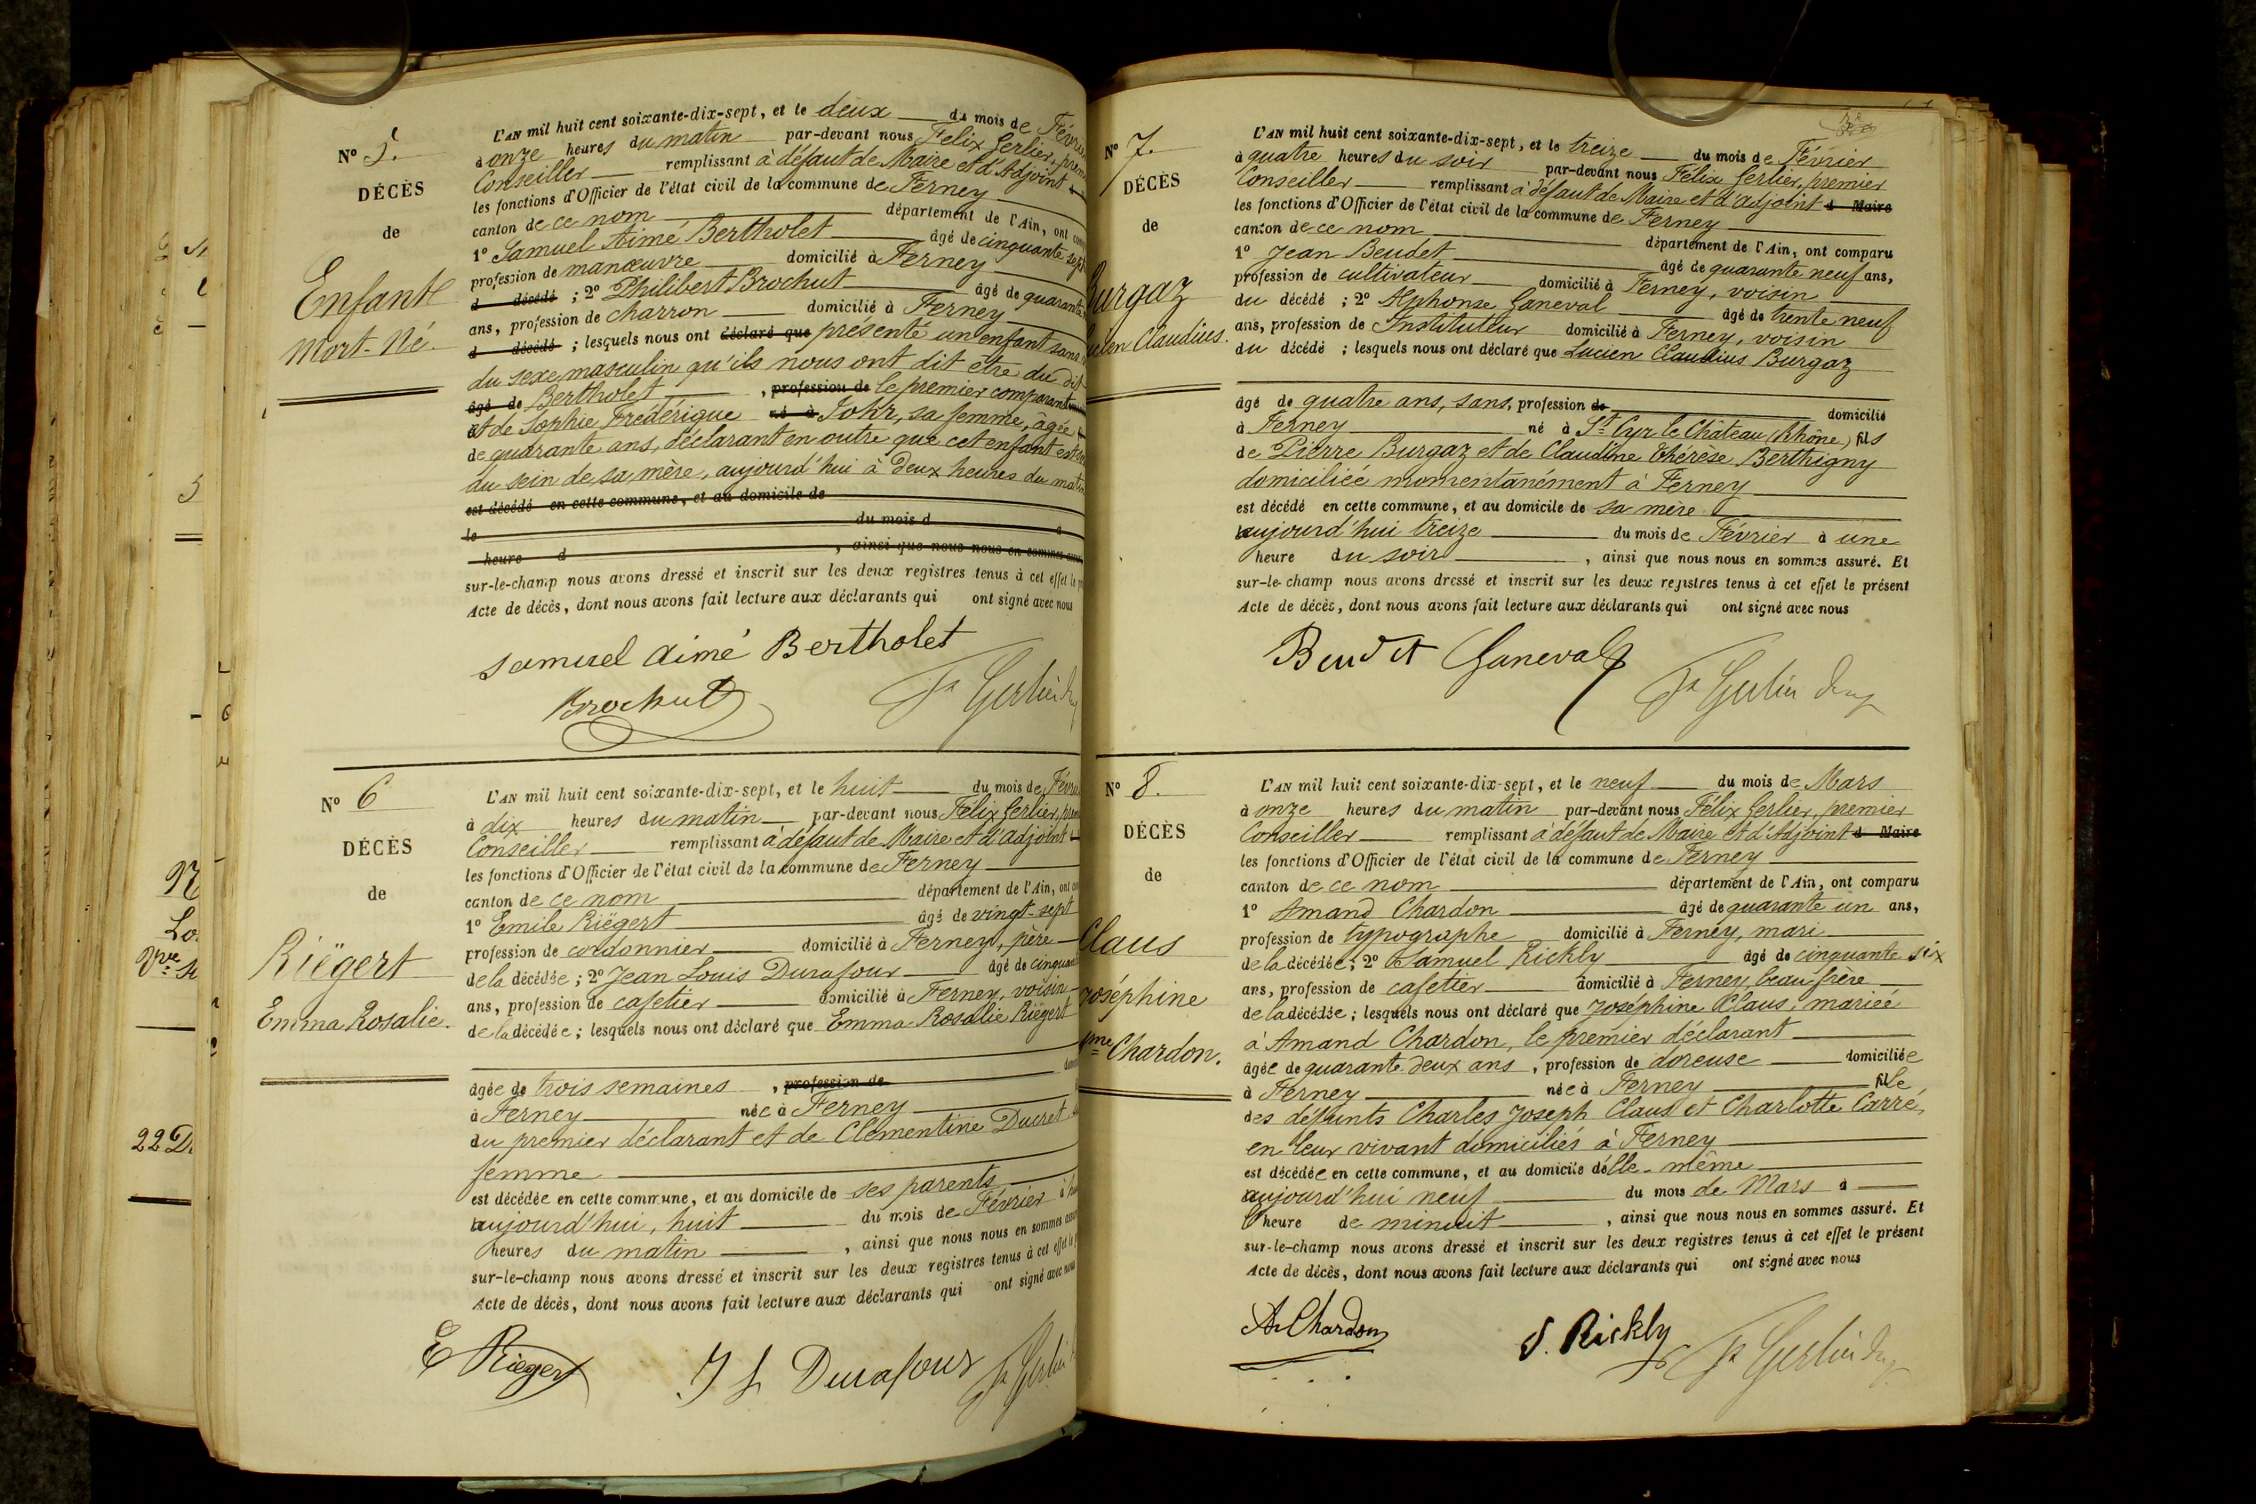 N° 5.
DÉCÈS
de
Enfant
Mort-Né.
L'AN mil huit cent soixante-dix-sept, et le deux du mois de Février
à onze heures du matin par-devant nous Felix Gerlier,
Conseiller remplissant à défaut de Maire et d'Adjoint
les fonctions d'Officier de l'état civil de la commune de Ferney
canton de ce nom département de l'Ain, ont
1° Samuel Aimé Bertholet âgé de cinquante sept
profession de manœuvre domicilié à Ferney
d décédé ; 2° Philibert Brochut âgé de quarante
ans, profession de charron domicilié à Ferney
d décédé ; lesquels nous ont déclaré que présenté un enfant sans
du sexe masculin qu'ils nous ont dit etre du dit
âgé de Bertholet , profession de le premier comparant
et de Sophie Frédérique né à Johr, sa femme, âgée
de quarante ans, déclarant en outre que cet enfant est
du sein de sa mère, aujourd'hui à deux heures du matin
est décédé en cette commune, et au domicile de
le du mois d à
heure d , ainsi que nous nous en sommes
sur-le-champ nous avons dressé et inscrit sur les deux registres tenus à cet effet le
Acte de décès, dont nous avons fait lecture aux déclarants qui ont signé avec nous
Samuel Aimé Bertholet
Brochut Fx Gerlier
N° 6
DÉCÈS
de
Riëgert
Emma Rosalie.
L'AN mil huit cent soixante-dix-sept, et le huit du mois de
à dix heures du matin par-devant nous Félix Gerlier,
Conseiller remplissant à défaut de Maire et d'Adjoint
les fonctions d'Officier de l'état civil de la commune de Ferney
canton de ce nom département de l'Ain, ont
1° Emile Riëgert âgé de vingt-sept
profession de cordonnier domicilié à Ferney, père
de la décédée ; 2° Jean Louis Durafour âgé de
ans, profession de cafetier domicilié à Ferney, voisin
de la décédée ; lesquels nous ont déclaré que Emma Rosalie Riëgert
âgée de trois semaines , profession de
à Ferney née à Ferney
du premier déclarant et de Clémentine Ducret
femme
est décédée en cette commune, et au domicile de ses parents
aujourd'hui, huit du mois de Février à
heures du matin , ainsi que nous nous en sommes
sur-le-champ nous avons dressé et inscrit sur les deux registres tenus à cet effet le
Acte de décès, dont nous avons fait lecture aux déclarants qui ont signé avec nous
E Riegert J L Durafour Fx Gerlier
N° 7.
DÉCÈS
de
Burgaz
Claudius.
L'AN mil huit cent soixante-dix-sept, et le treize du mois de Février
à quatre heures du soir par-devant nous Félix Gerlier, premier
Conseiller remplissant à défaut de Maire et d'adjoint d Maire
les fonctions d'Officier de l'état civil de la commune de Ferney
canton de ce nom département de l'Ain, ont comparu
1° Jean Beudet âgé de quarante neuf ans,
profession de cultivateur domicilié à Ferney, voisin
du décédé ; 2° Alphonse Ganeval âgé de trente neuf
ans, profession de Instituteur domicilié à Ferney, voisin
du décédé ; lesquels nous ont déclaré que Lucien Claudius Burgaz
âgé de quatre ans, sans, profession de domicilié
à Ferney né à St Cyr le Château (Rhône) fils
de Pierre Burgaz et de Claudine Thérèse Berthigny
domiciliée momentanément à Ferney
est décédé en cette commune, et au domicile de sa mère
aujourd'hui treize du mois de Février à une
heure du soir , ainsi que nous nous en sommes assuré. Et
sur-le-champ nous avons dressé et inscrit sur les deux registres tenus à cet effet le présent
Acte de décès, dont nous avons fait lecture aux déclarants qui ont signé avec nous
Beudet Ganeval Fx Gerlier
N° 8.
DÉCÈS
de
Claus
Joséphine
Chardon.
L'AN mil huit cent soixante-dix-sept, et le neuf du mois de Mars
à onze heures du matin par-devant nous Félix Gerlier, premier
Conseiller remplissant à défaut de Maire et d'Adjoint d Maire
les fonctions d'Officier de l'état civil de la commune de Ferney
canton de ce nom département de l'Ain, ont comparu
1° Amand Chardon âgé de quarante un ans,
profession de typographe domicilié à Ferney, mari
de la décédée ; 2° Samuel Rickly âgé de cinquante six
ans, profession de cafetier domicilié à Ferney, beau frère
de la décédée ; lesquels nous ont déclaré que Joséphine Claus, mariée
à Amand Chardon, le premier déclarant
âgée de quarante deux ans , profession de doreuse domiciliée
à Ferney née à Ferney fille
des défunts Charles Joseph Claus et Charlotte Carré,
en leur vivant domiciliés à Ferney
est décédée en cette commune, et au domicile d'elle-même
aujourd'hui neuf du mois de Mars à
l'heure de minuit , ainsi que nous nous en sommes assuré. Et
sur-le-champ nous avons dressé et inscrit sur les deux registres tenus à cet effet le présent
Acte de décès, dont nous avons fait lecture aux déclarants qui ont signé avec nous
A. Chardon S. Rickly Fx Gerlier